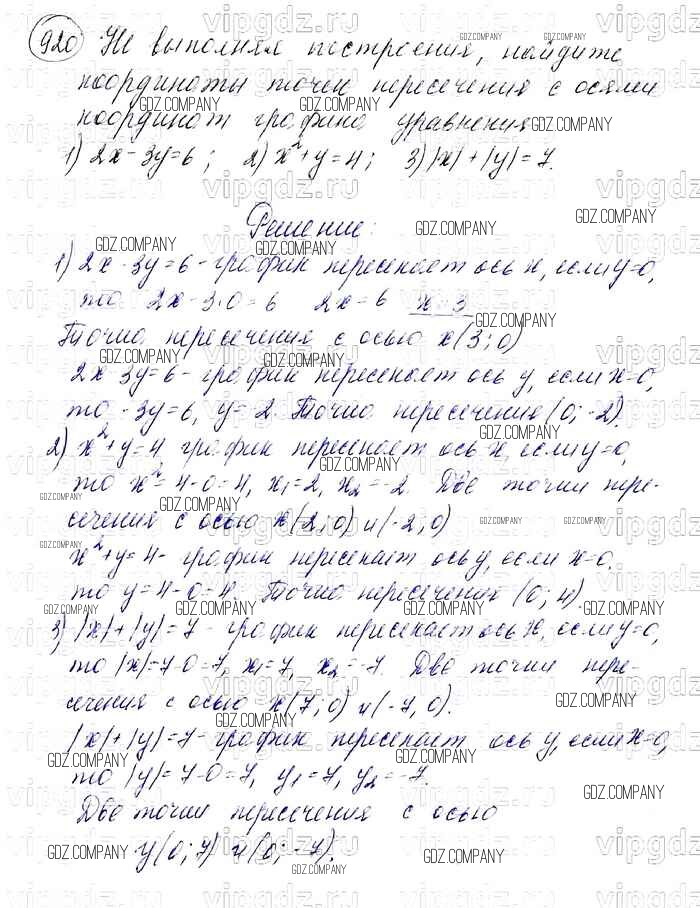 920 Не выполняя построения, найдите
координаты точек пересечения с осями
координат графика уравнения
1) 2x - 3y = 6; 2) x² + y = 4; 3) |x| + |y| = 7.
Решение:
1) 2x - 3y = 6 - график пересекает ось x, если y=0,
то 2x - 3·0 = 6 2x = 6 x = 3
Точка пересечения с осью x (3; 0)
2x - 3y = 6 - график пересекает ось y, если x=0,
то -3y = 6, y = -2. Точка пересечения (0; -2).
2) x² + y = 4 график пересекает ось x, если y=0,
то x² = 4-0 = 4, x₁ = 2, x₂ = -2. Две точки пере-
сечения с осью x (2; 0) и (-2; 0)
x² + y = 4 - график пересекает ось y, если x=0.
то y = 4-0 = 4. Точка пересечения (0; 4).
3) |x| + |y| = 7 - график пересекает ось x, если y=0,
то |x| = 7-0 = 7, x₁ = 7, x₂ = -7. Две точки пере-
сечения с осью x (7; 0) и (-7, 0).
|x| + |y| = 7 - график пересекает ось y, если x=0,
то |y| = 7-0 = 7, y₁ = 7, y₂ = -7.
Две точки пересечения с осью
y (0; 7) и (0; -7).
vipgdz.ru
GDZ.COMPANY